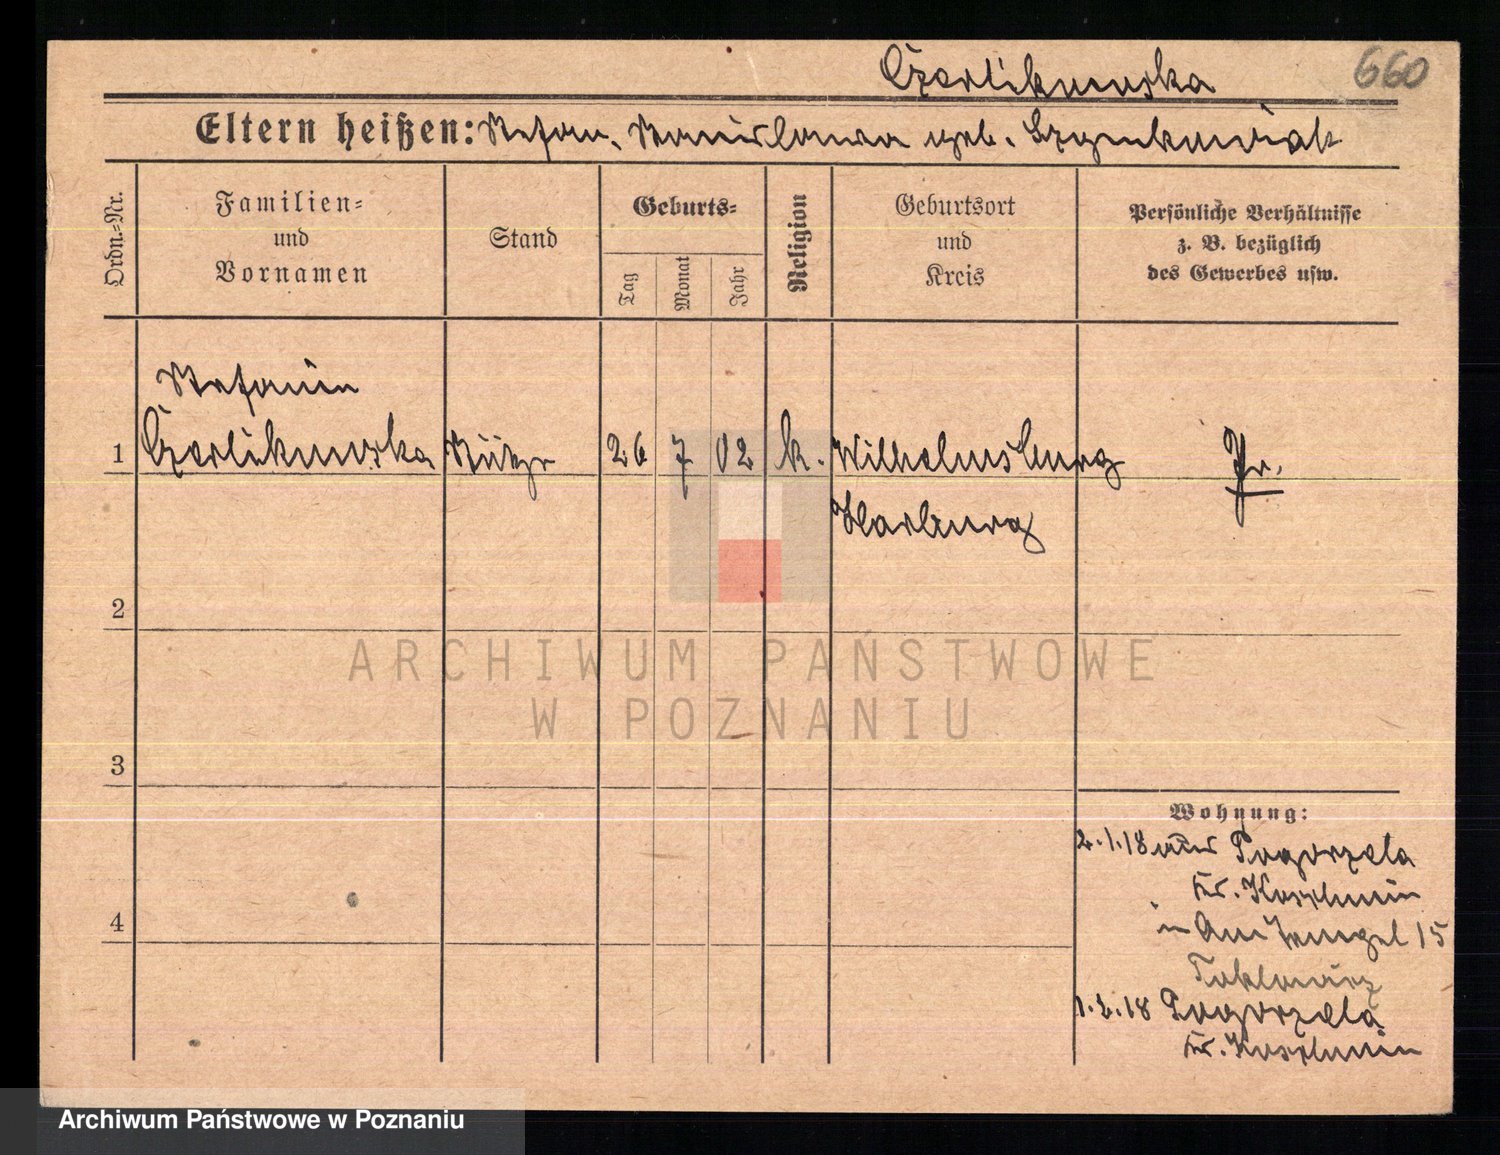 Czerlikowska
660
Eltern heißen: Stefan, Stanislawa geb. Szymkowiak
Ordn.=Nr.
Familien=
und
Vornamen
Stand
Geburts=
Tag
Monat
Jahr
Religion
Geburtsort
und
Kreis
Persönliche Verhältnisse
z. B. bezüglich
des Gewerbes usw.
Stefanie
1 Czerlikowska Stütze 26 7 02 k. Wilhelmsburg Pr.
Harburg
2
ARCHIWUM PAŃSTWOWE
W POZNANIU
3
Wohnung:
2.1.18 aus Pogorzela
Kr. Koschmin
4
in 15
1.2.18 Pogorzela
Kr. Koschmin
Archiwum Państwowe w Poznaniu